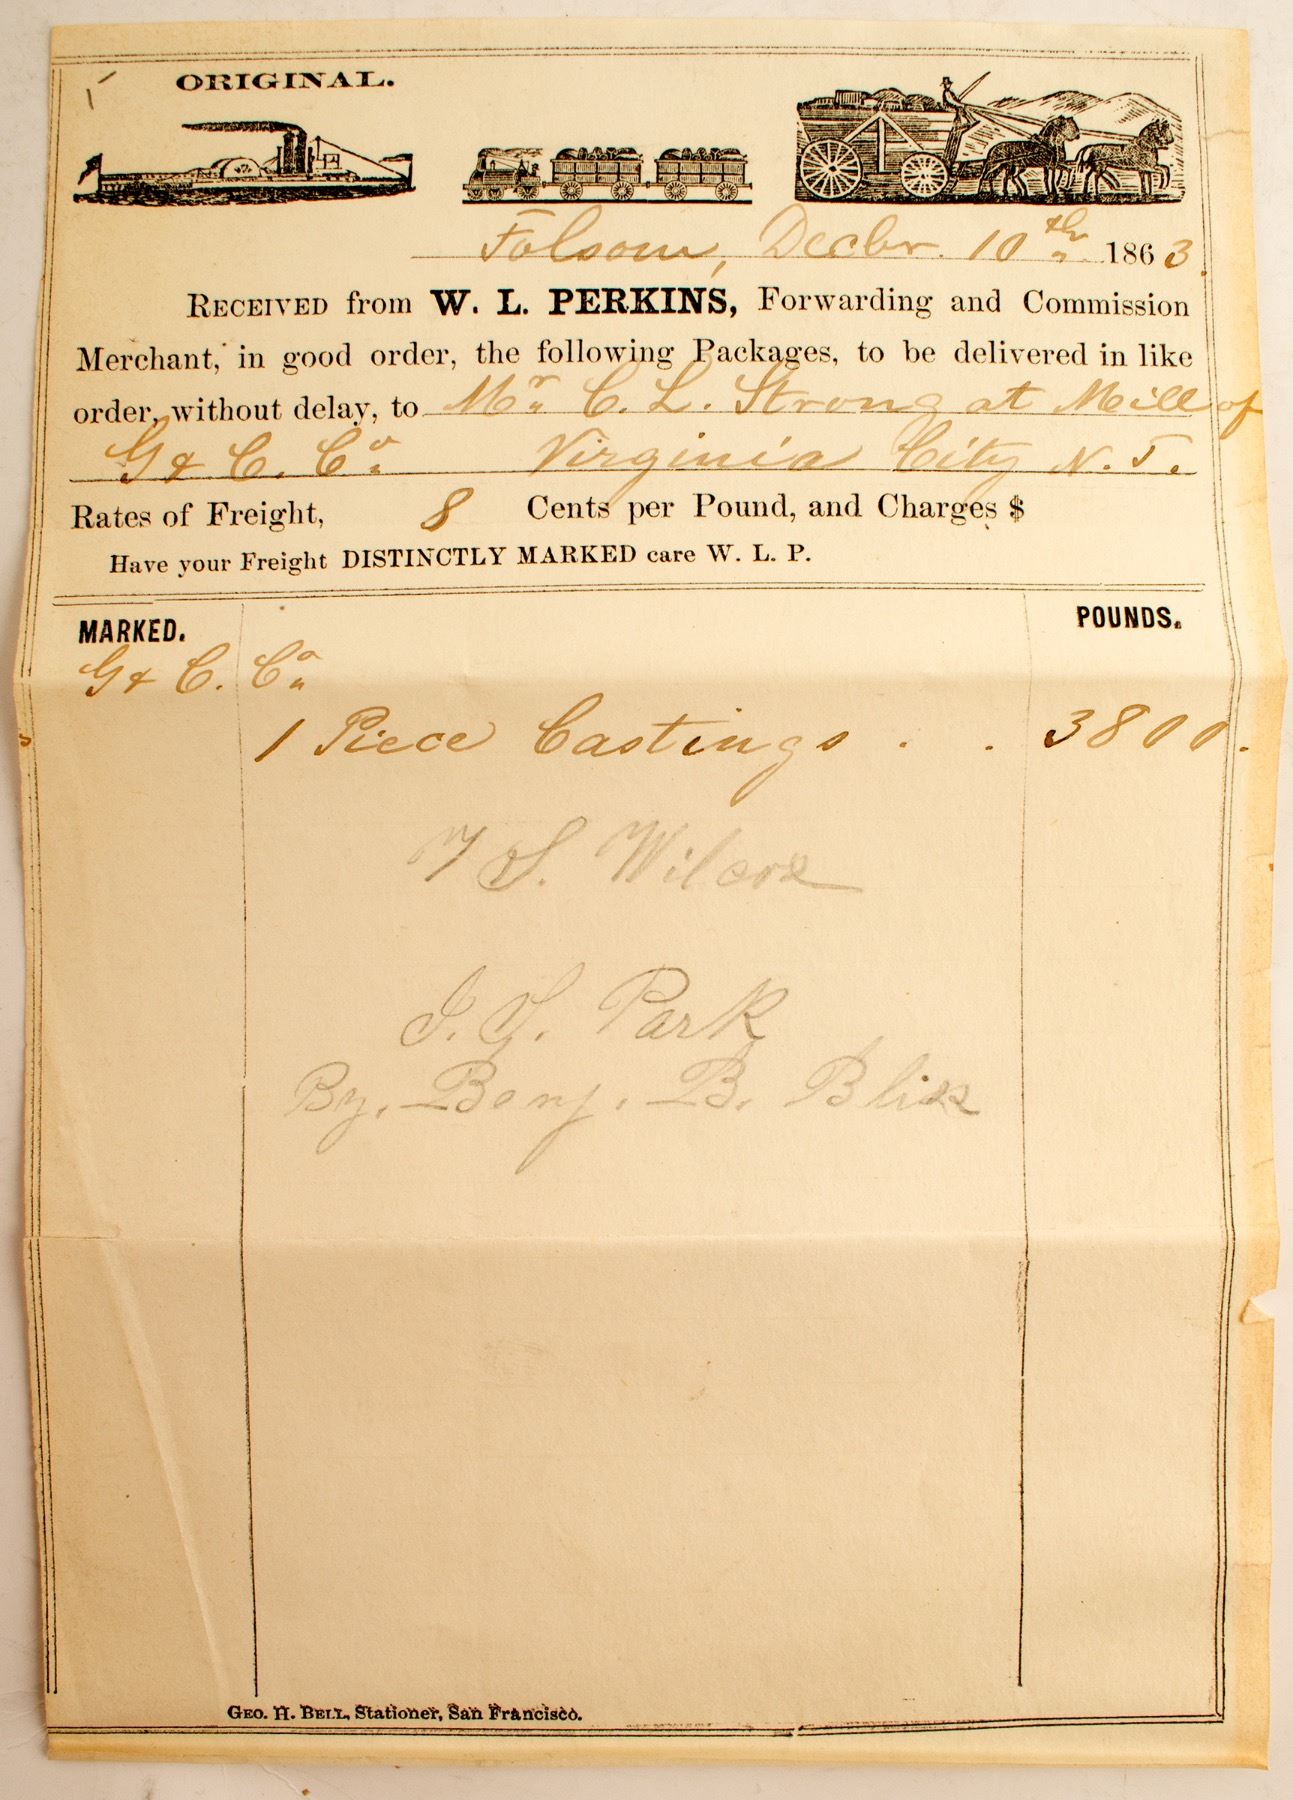 ORIGINAL.
Folsom, Decbr. 10th 1863.
RECEIVED from W. L. PERKINS, Forwarding and Commission
Merchant, in good order, the following Packages, to be delivered in like
order, without delay, to Mr. C. L. Strong at Mill of
G & C. Co. Virginia City N. T.
Rates of Freight, 8 Cents per Pound, and Charges $
Have your Freight DISTINCTLY MARKED care W. L. P.
MARKED. POUNDS.
G & C. Co.
1 Piece Castings . . 3800.
S. Wilcox
Park
By. Benj. B. Bliss
GEO. H. BELL, Stationer, San Francisco.